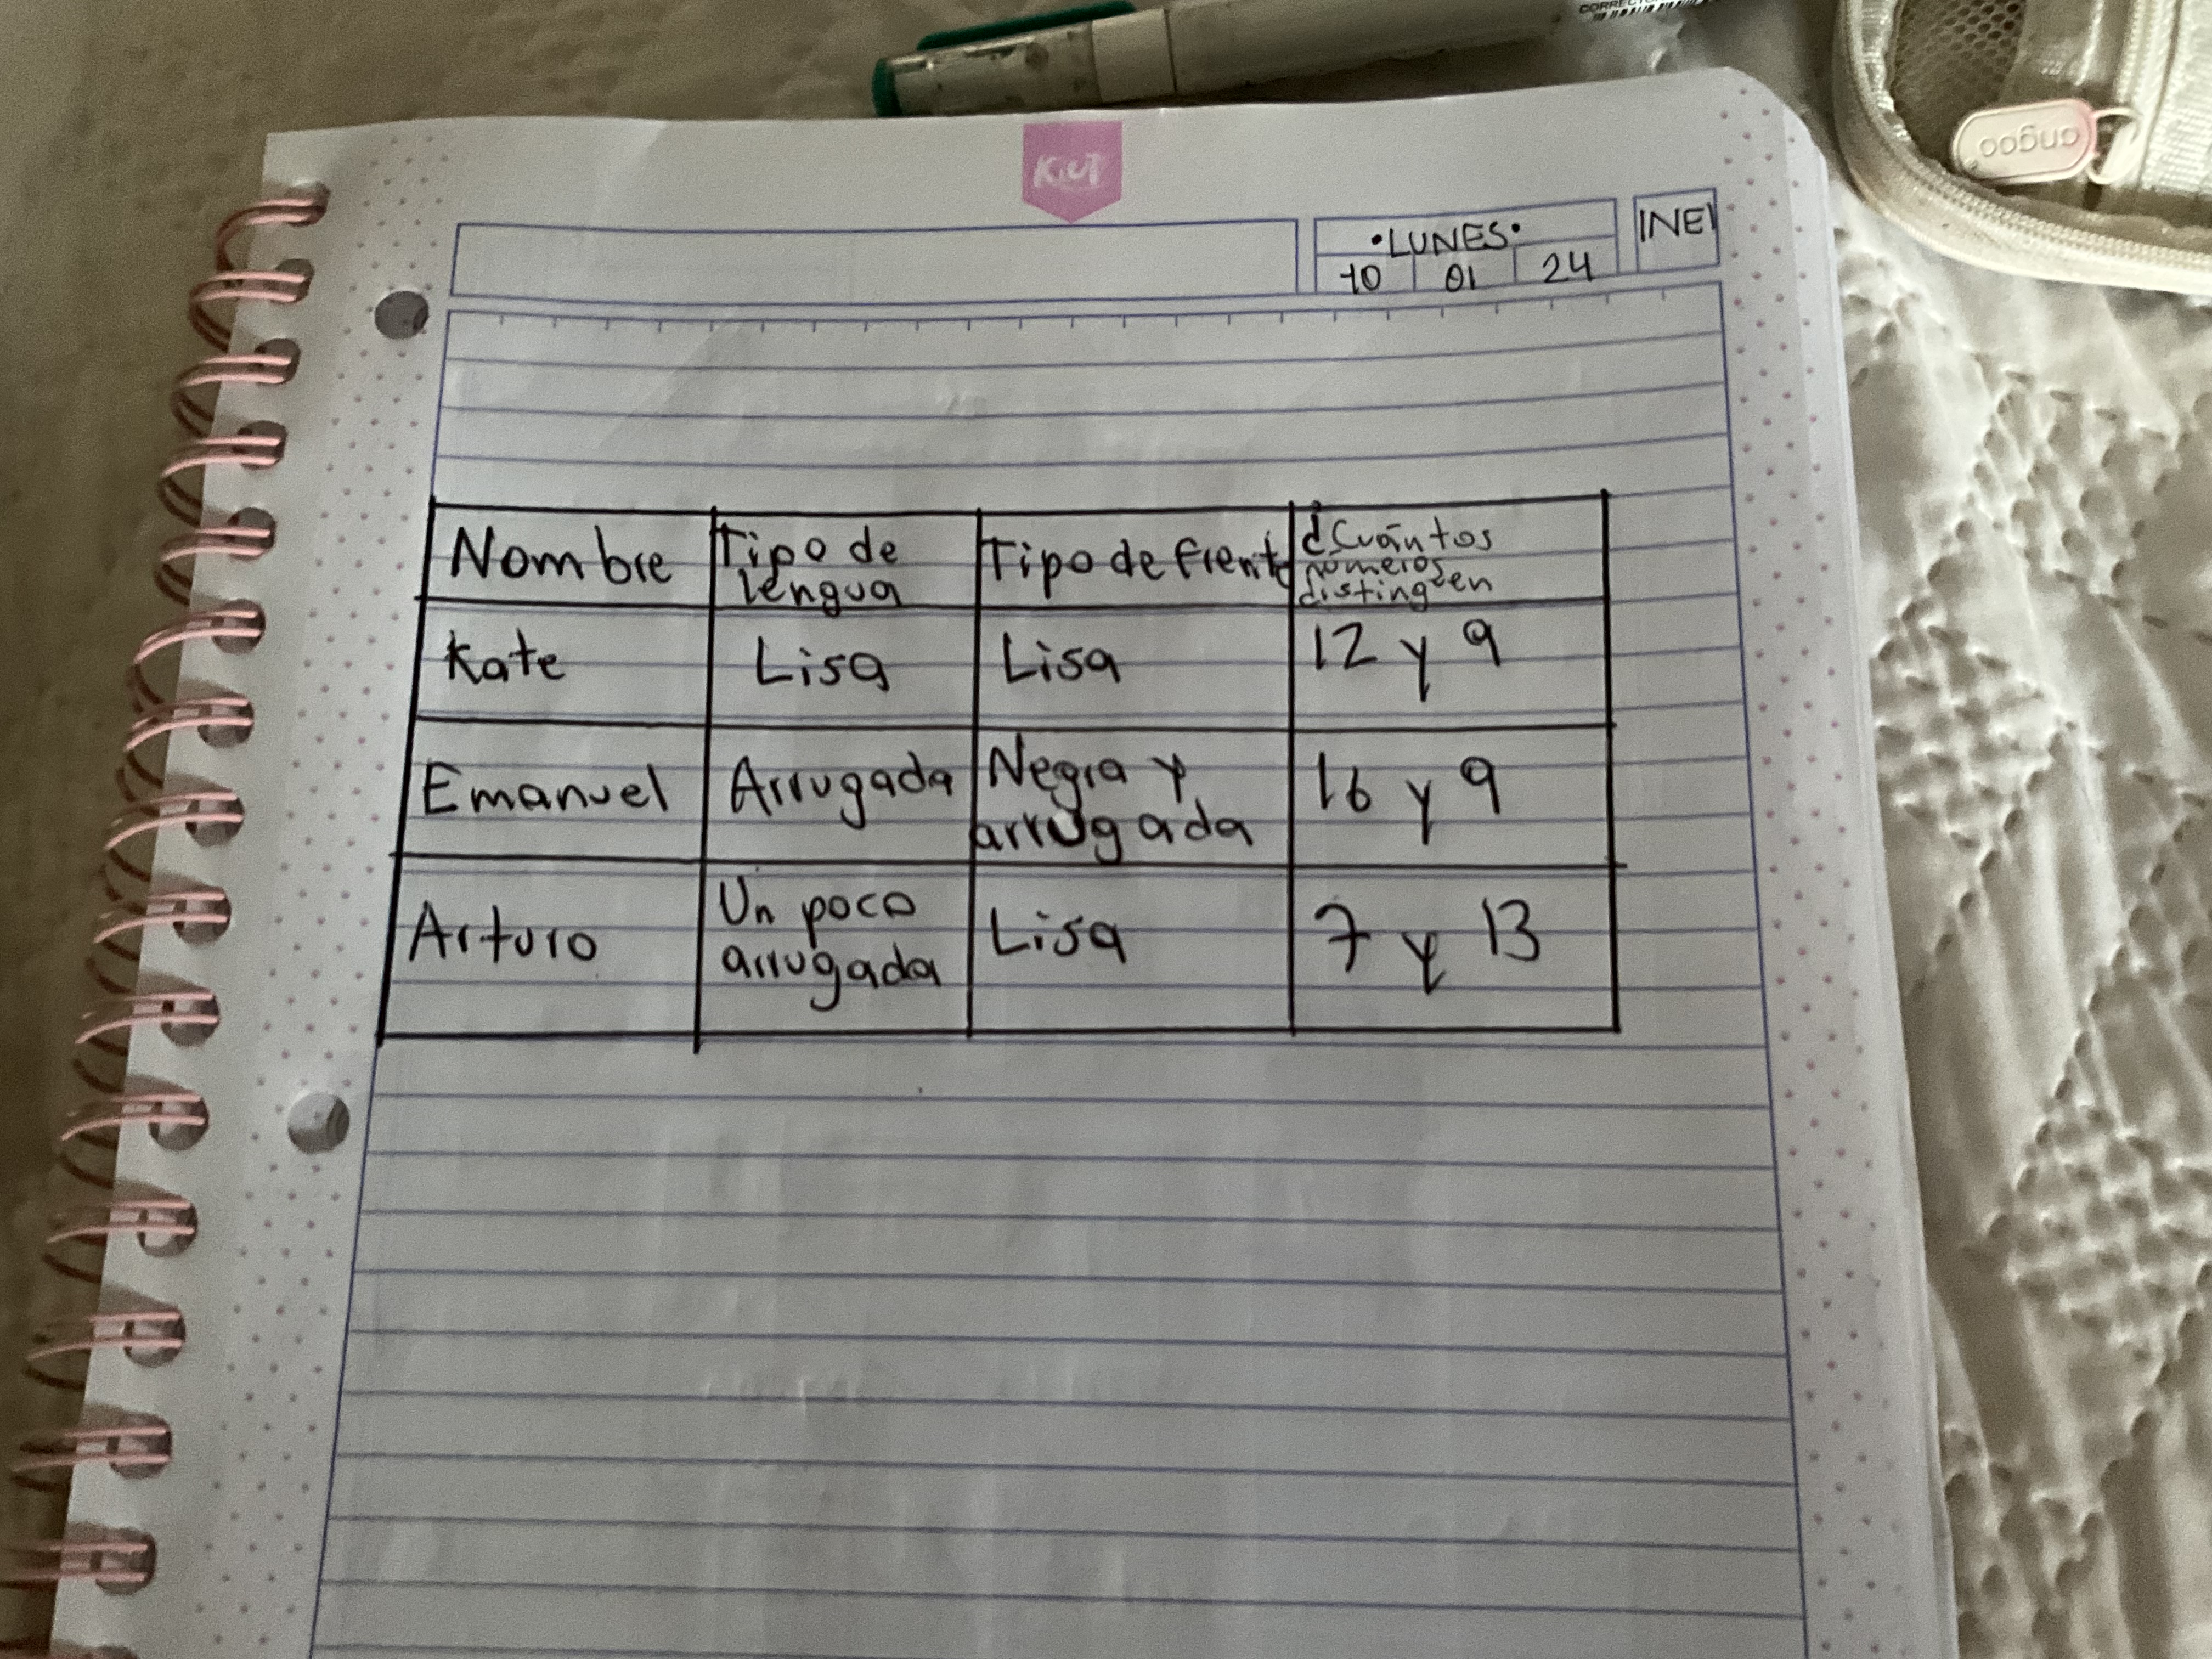 CORRECT
angoo
KIUT
•LUNES•
INE
10 01 24
Nombre
Tipo de
lengua
Tipo de frente
¿Cuántos
números
distinguen
Kate
Lisa
Lisa
12 y 9
Emanuel
Arrugada
Negra y
arrugada
16 y 9
Arturo
Un poco
arrugada
Lisa
7 y 13